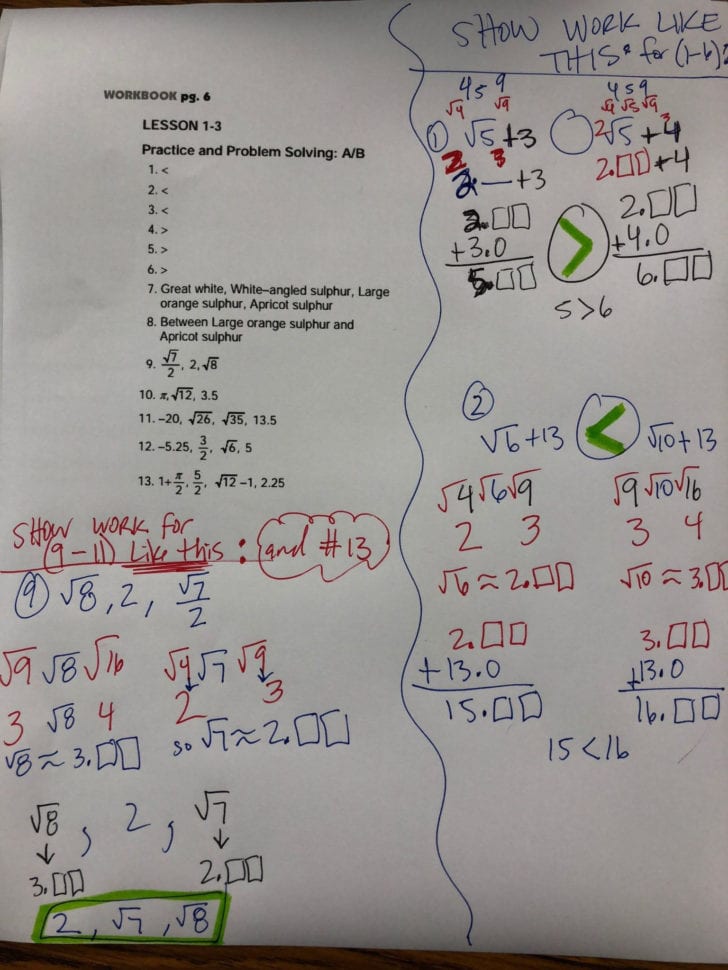 WORKBOOK pg. 6
LESSON 1-3
Practice and Problem Solving: A/B
1. <
2. <
3. <
4. >
5. >
6. >
7. Great white, White–angled sulphur, Large
orange sulphur, Apricot sulphur
8. Between Large orange sulphur and
Apricot sulphur
9. √7/2, 2, √8
10. π, √12, 3.5
11. –20, √26, √35, 13.5
12. –5.25, 3/2, √6, 5
13. 1+π/2, 5/2, √12 –1, 2.25
SHOW WORK FOR
(9-11) Like this: and #13
⑨ √8, 2, √7/2
√9 √8 √16 √4 √7 √9
3 √8 4 2 3
√8 ≈ 3.□□ so √7 ≈ 2.□□
√8, 2, √7
↓ ↓
3.□□ 2.□□
2, √7, √8
SHOW WORK LIKE
THIS for (1-6)
4 5 9 4 5 9
√4 √9 √4 √5 √9
① √5 +3 2√5 +4
2 3 3
2.— +3 2.□□ +4
2.□□ 2.□□
+3.0 > +4.0
5.□□ 6.□□
5>6
②
√6 +13 < √10 +13
√4 √6 √9 √9 √10 √16
2 3 3 4
√6 ≈ 2.□□ √10 ≈ 3.□□
2.□□ 3.□□
+13.0 +13.0
15.□□ 16.□□
15 < 16